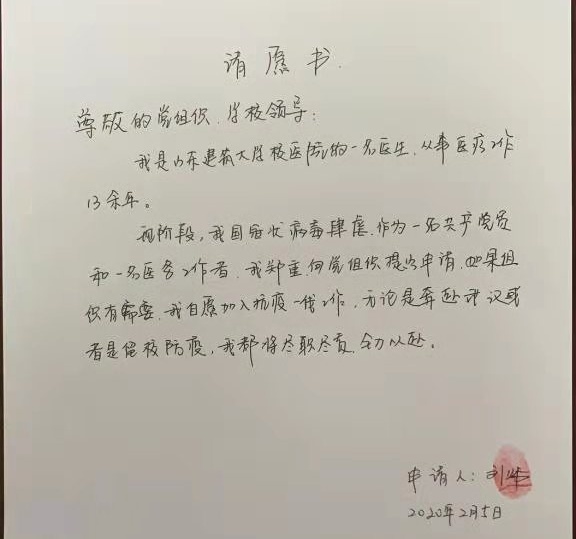 请愿书.
尊敬的党组织、学校领导:
我是山东建筑大学校医院的一名医生,从事医疗工作
13余年。
现阶段,我国冠状病毒肆虐.作为一名共产党员
和一名医务工作者,我郑重向党组织提出申请,如果组
织有需要,我自愿加入抗疫一线工作,无论是奔赴武汉或
者是在校防疫,我都将尽职尽责,全力以赴。
申请人:刘华
2020年2月5日